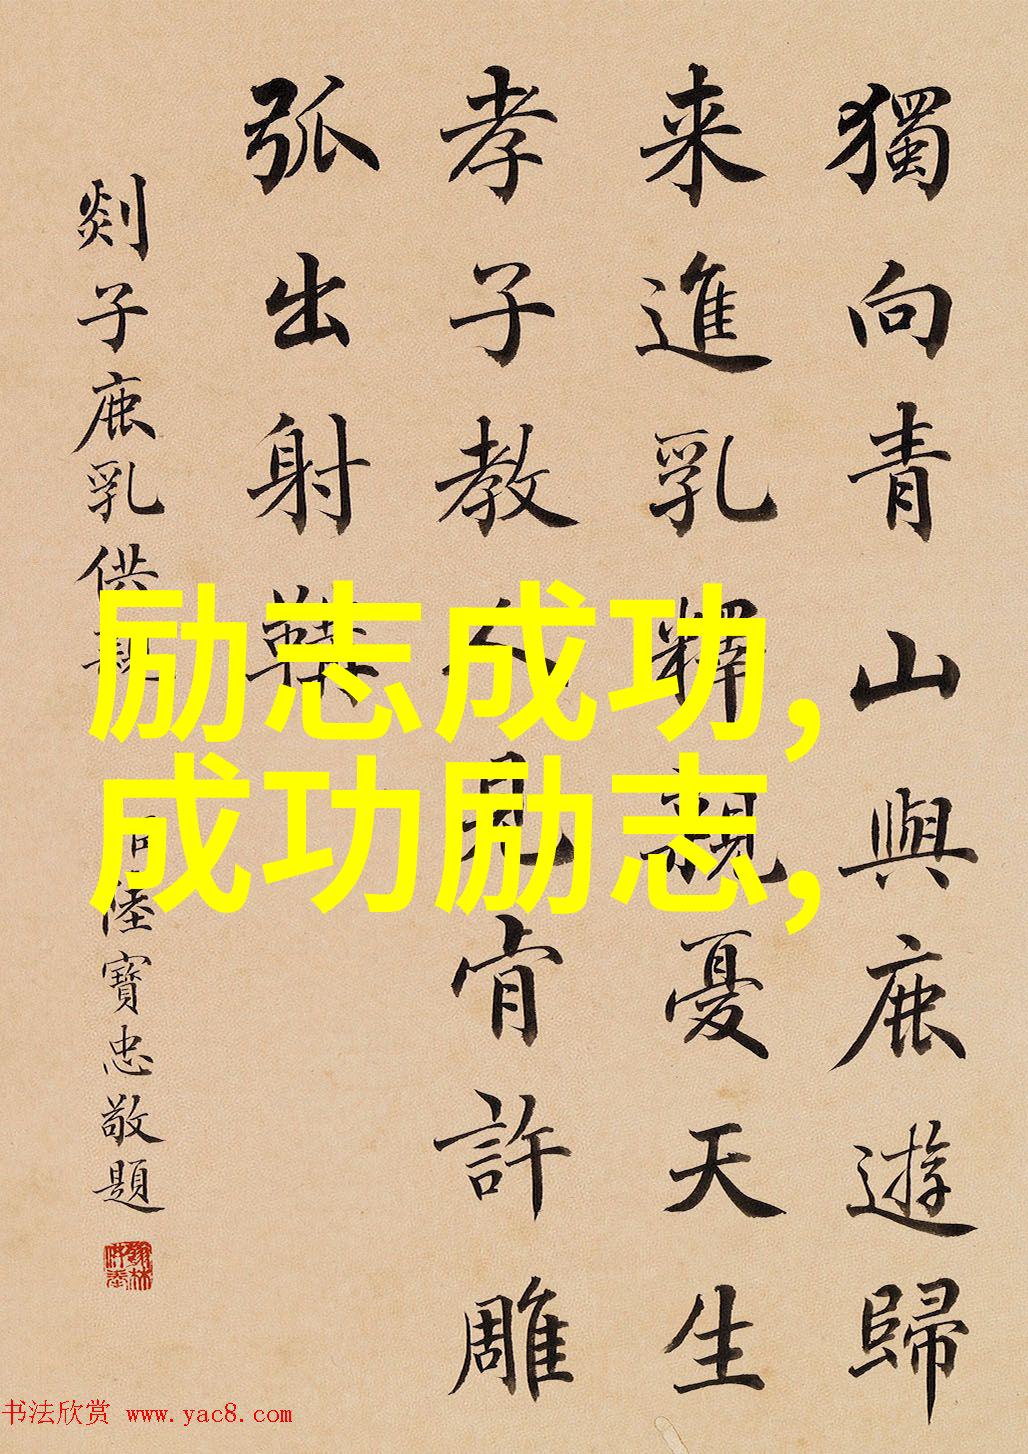 獨向青山與鹿遊歸
来進乳釋親憂天生
孝子教人見肯許雕
弧出射
剡子鹿乳供親
陸寶忠敬題
翰林供奉
励志成功,
成功励志,
书法欣赏 www.yac8.com